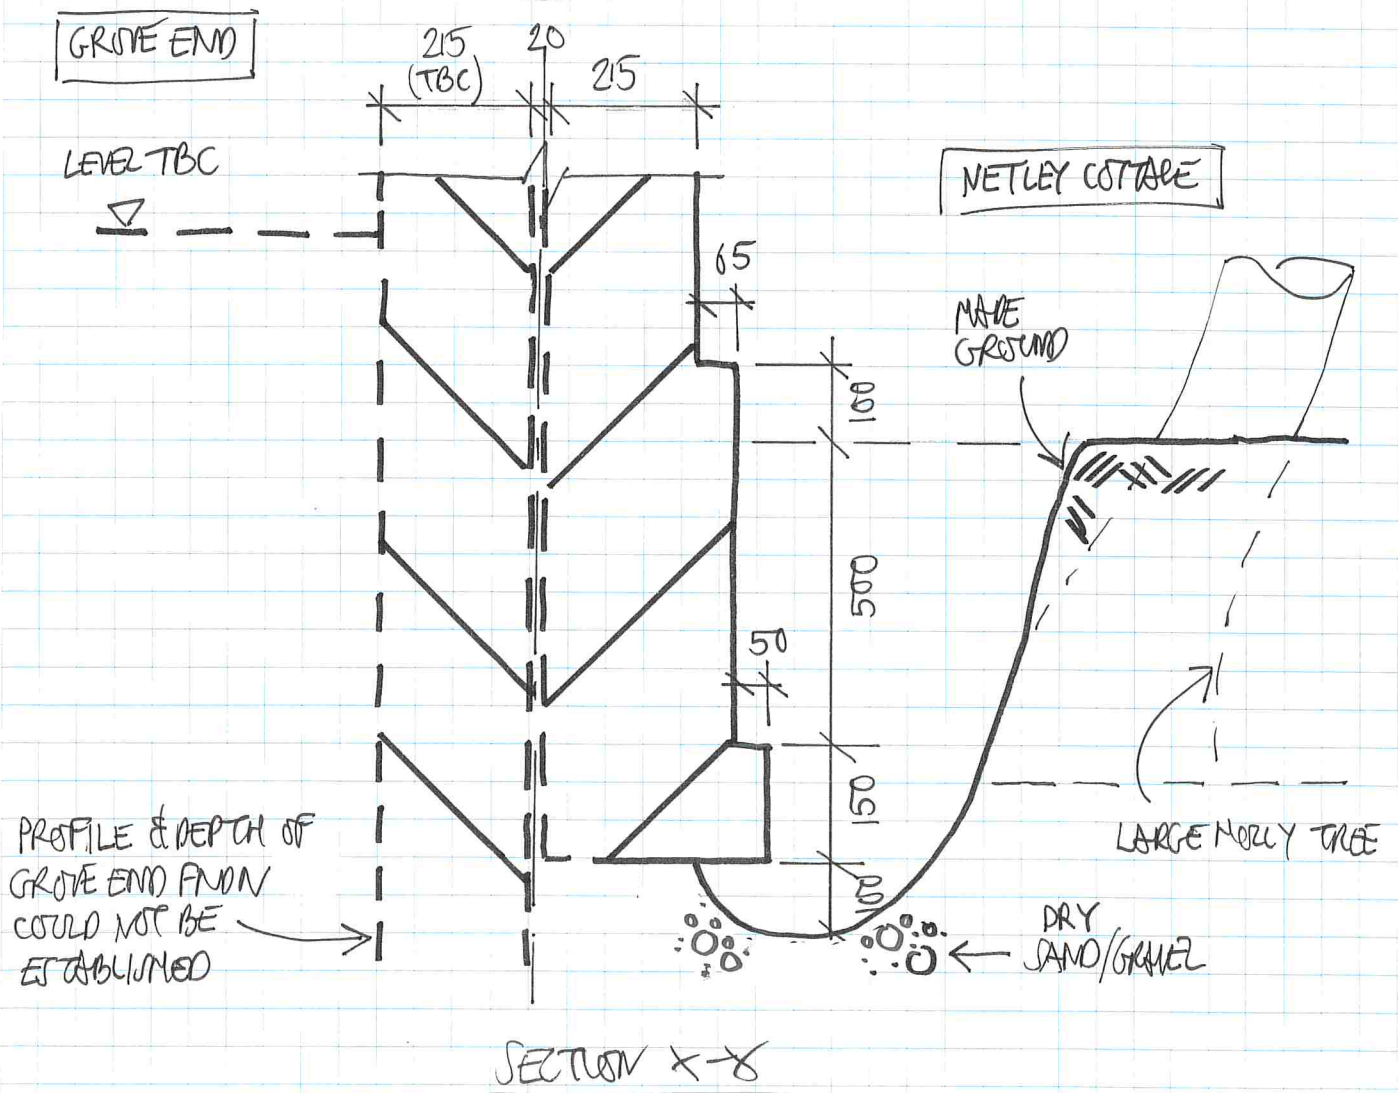 GROVE END
215 20
(TBC) 215
LEVEL TBC
NETLEY COTTAGE
65
MADE
GROUND
100
500
50
150
PROFILE & DEPTH OF
GROVE END FNDN
COULD NOT BE
ESTABLISHED
LARGE HOLLY TREE
100
DRY
SAND/GRAVEL
SECTION X-X